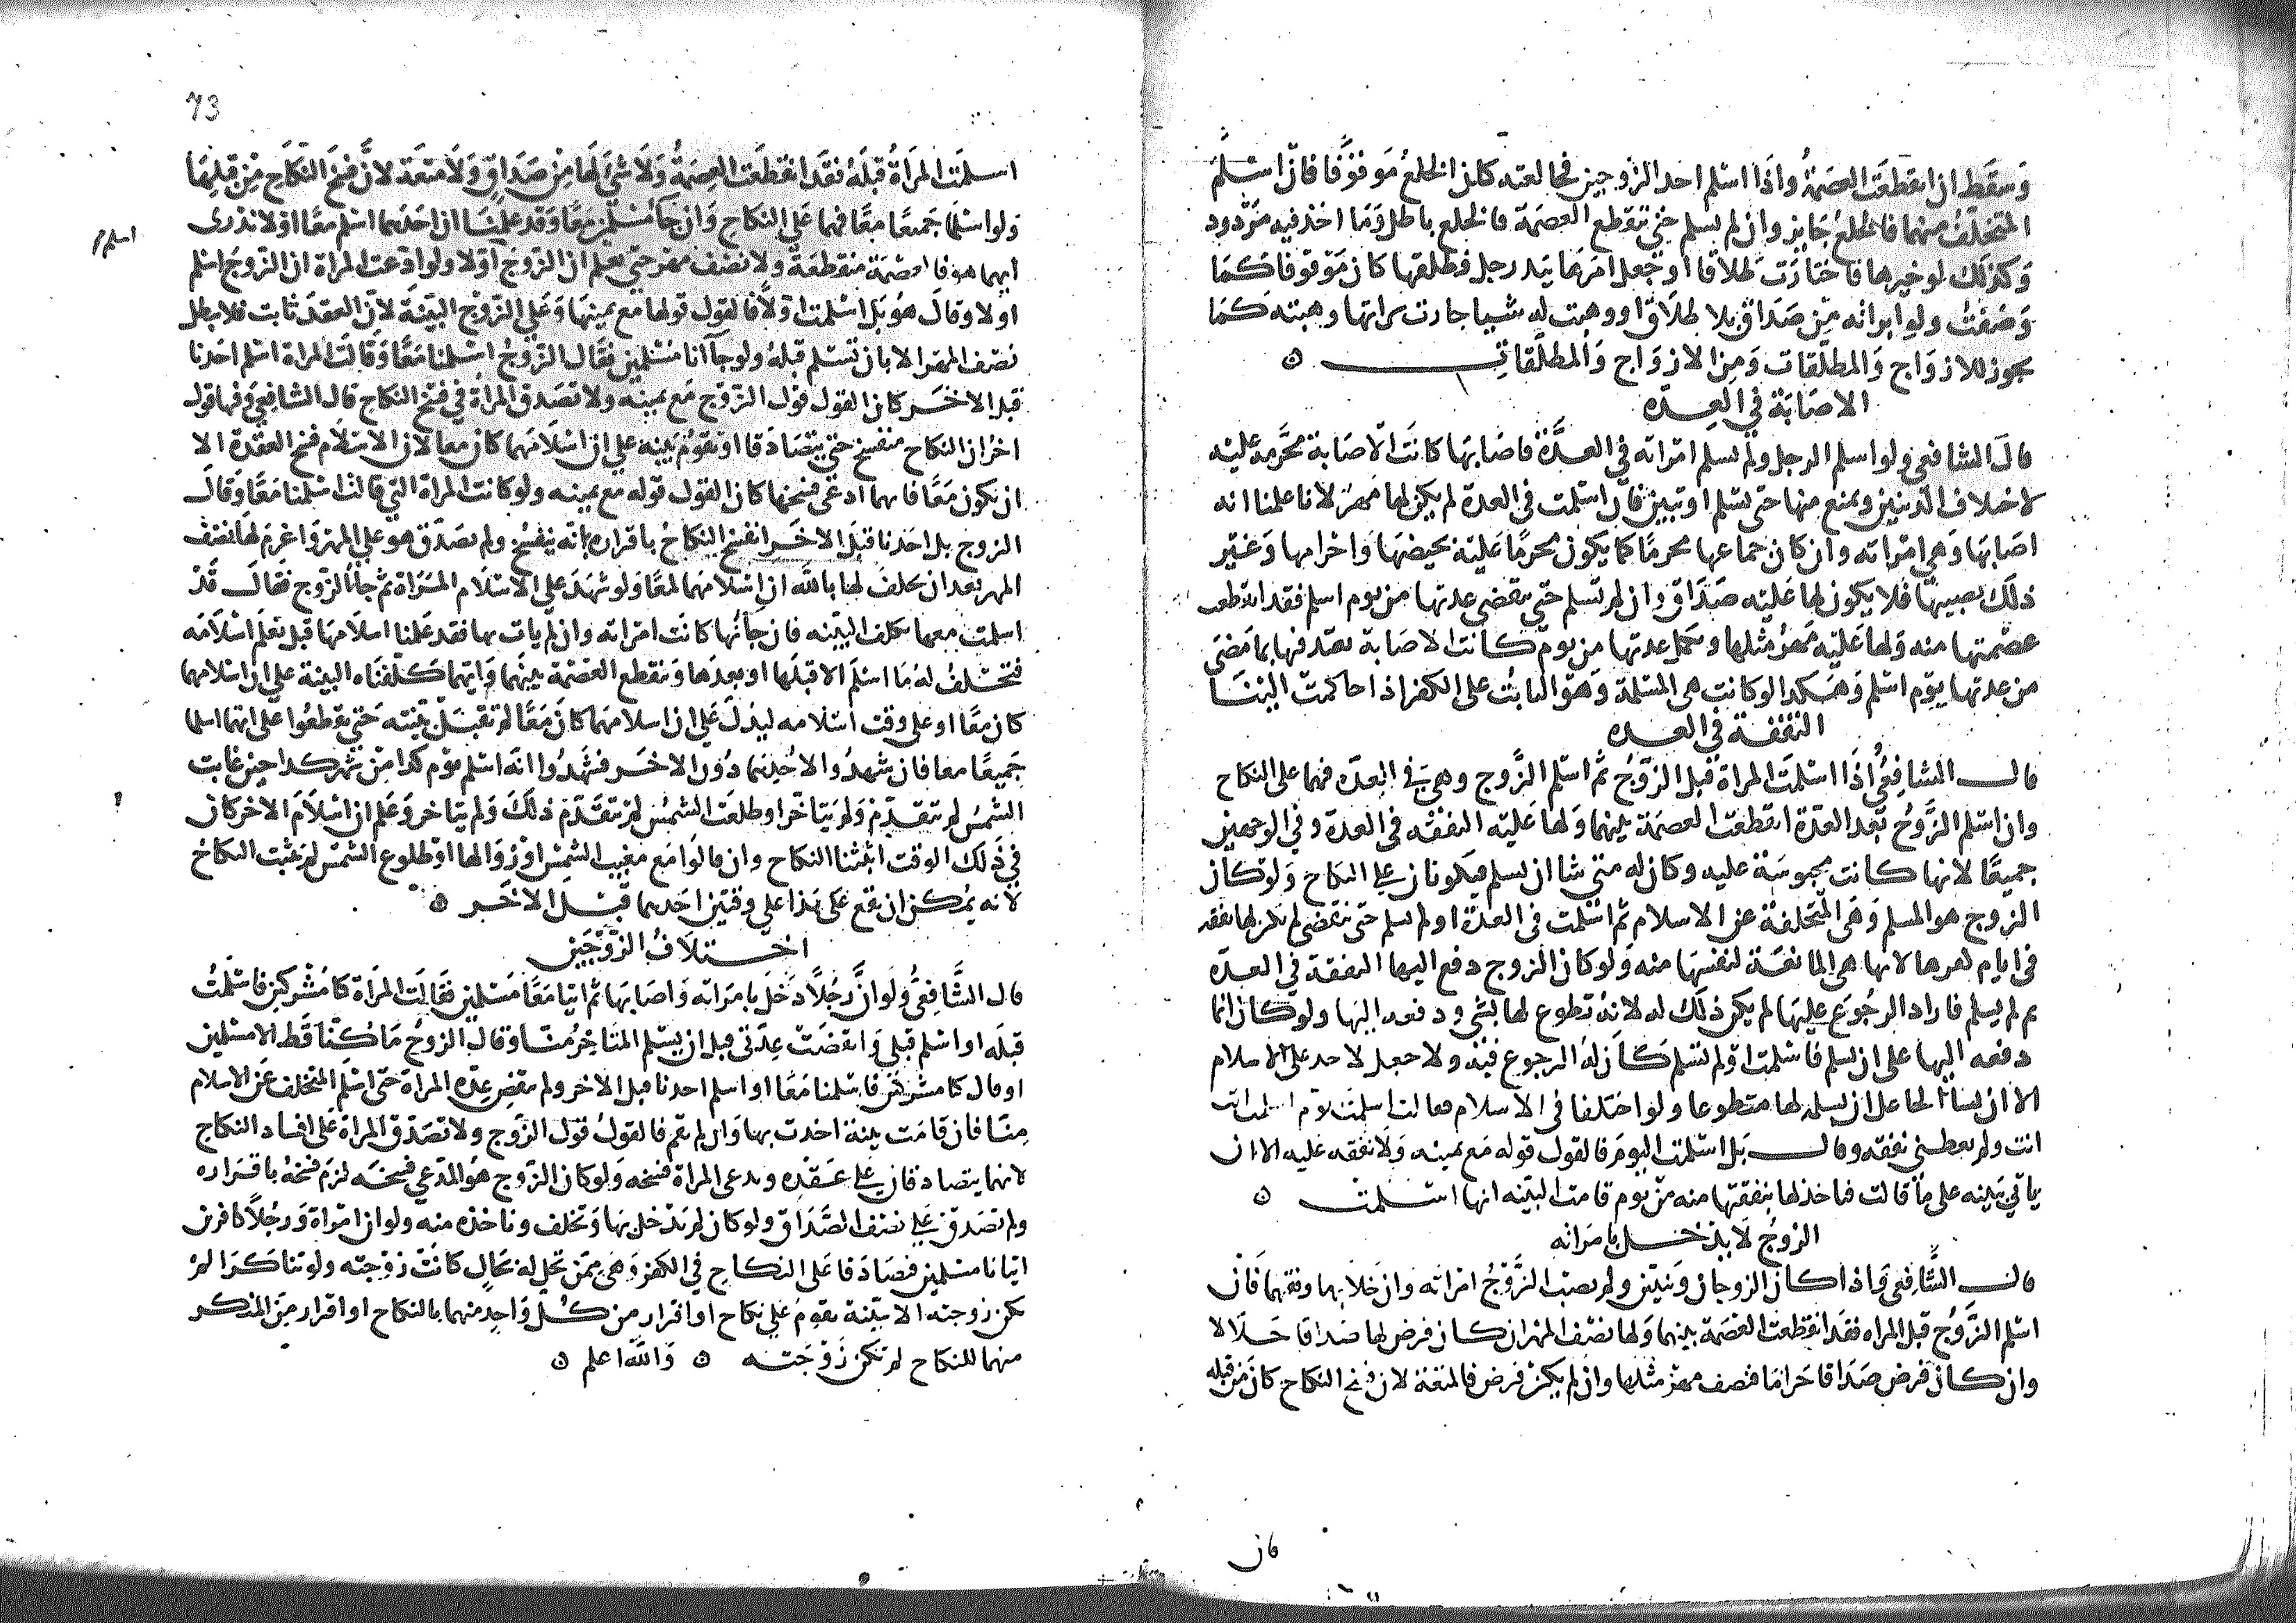 وسقط ان انقطعت العصمة واذا اسلم احد الزوجين فخالعته كان الخلع موقوفا فان اسلم
المتخلف منهما فالخلع جايز وان لم يسلم حتى تنقطع العصمة فالخلع باطل وما اخذ فيه مردود
وكذلك لو خيرها فاختارت طلاقا او جعل امرها بيد رجل فطلقها كان موقوفا كما
وصفت ولو ابراته من صداق بلا طلاق او وهبت له شيا جازت براتها وهبته كما
يجوز للازواج والمطلقات ومن الازواج والمطلقات ه
الاصابة في العدة
قال الشافعي ولو اسلم الرجل ولم تسلم امراته في العدة فاصابها كانت الاصابة محرمة عليه
لاختلاف الدينين ويمنع منها حتى تسلم او تبين فان اسلمت في العدة لم يكن لها مهر لانا علمنا انه
اصابها وهي امراته وان كان جماعها محرما كما يكون محرما عليه بحيضها واحرامها وغير
ذلك يصيبها فلا يكون لها عليه صداق وان لم تسلم حتى تنقضي عدتها من يوم اسلم فقد انقطعت
عصمتها منه ولها عليه مهر مثلها وتكمل عدتها من يوم كانت الاصابة تعتد فيها بما مضى
من عدتها يوم اسلم وهكذا لو كانت هي المسلمة وهو الثابت على الكفر اذا حاكمت الينا
النفقة في العدة
قال الشافعي اذا اسلمت المراة قبل الزوج ثم اسلم الزوج وهي في العدة فهما على النكاح
وان اسلم الزوج بعد العدة انقطعت العصمة بينهما ولها عليه النفقة في العدة وفي الوجهين
جميعا لانها كانت محبوسة عليه وكان له متى شا ان يسلم فيكونان على النكاح ولو كان
الزوج هو المسلم وهي المتخلفة عن الاسلام ثم اسلمت في العدة او لم تسلم حتى تنقضي لم يكن لها نفقة
في ايام كفرها لانها هي المانعة لنفسها منه ولو كان الزوج دفع اليها النفقة في العدة
ثم لم يسلم فاراد الرجوع عليها لم يكن ذلك له لانه تطوع لها بشي ودفعه اليها ولو كان انما
دفعه اليها على ان تسلم فاسلمت او لم تسلم كان له الرجوع فيه ولا جعل لاحد على الاسلام
الا ان يشا الجاعل ان يسلمه لها متطوعا ولو اختلفا في الاسلام فقالت اسلمت يوم اسلمت انت
انت ولم يعطني نفقة وقال بل اسلمت اليوم فالقول قوله مع يمينه ولا نفقة عليه الا ان
ياتي بينة على ما قالت فياخذ لها بنفقتها منه من يوم قامت البينة انها اسلمت ه
الزوج لا يدخل بامراته
قال الشافعي واذا كان الزوجان وثنيين ولم يصب الزوج امراته وان خلا بها وقفهما فان
اسلم الزوج قبل المراه فقد انقطعت العصمة بينهما ولها نصف المهر ان كان فرض لها صداقا حلالا
وان كان فرض صداقا حراما فنصف مهر مثلها وان لم يكن فرض فالمتعة لان فسخ النكاح كان من قبله
فان
73
اسلمت المراة قبله فقد انقطعت العصمة ولا شي لها من صداق ولا متعة لان فسخ النكاح من قبلها
ولو اسلما جميعا معا فهما على النكاح وان جاا مسلمين معا وقد علمنا ان احدهما اسلم معا او لا ندري
اسلم
ايهما هو فالعصمة منقطعة ولا نصف مهر حتى نعلم ان الزوج اولا ولو ادعت المراة ان الزوج اسلم
اولا وقال هو بل اسلمت اولا فالقول قولها مع يمينها وعلى الزوج البينة لان العقد ثابت فلا يبطل
نصف المهر الا بان تسلم قبله ولو جاانا مسلمين فقال الزوج اسلمنا معا وقالت المراة اسلم احدنا
قبل الاخر كان القول قول الزوج مع يمينه ولا تصدق المراة في فسخ النكاح قال الشافعي وفيها قول
اخر ان النكاح منفسخ حتى يتصادقا او تقوم بينة على ان اسلامهما كان معا لان الاسلام فسخ العقدة الا
ان يكون معا فايهما ادعى فسخها كان القول قوله مع يمينه ولو كانت المراة التي قالت اسلمنا معا وقال
الزوج بل احدنا قبل الاخر انفسخ النكاح باقراره بانه ينفسخ ولم يصدق هو على المهر واغرم لها نصف
المهر بعد ان تحلف لها بالله ان اسلامهما لمعا ولو شهد على الاسلام المراة ثم جا الزوج فقال قد
اسلمت معها تكلف البينة فان جا بها كانت امراته وان لم يات بها فقد علمنا اسلامها قبل نعلم اسلامه
فتحلف له ما اسلم الا قبلها او بعدها وتنقطع العصمة بينهما وايهما كلفناه البينة على ان اسلامهما
كان معا او على وقت اسلامه ليدل على ان اسلامهما كان معا لم تقبل بينته حتى يقطعوا على انهما اسلما
جميعا معا فان شهدوا لاحدهما دون الاخر فشهدوا انه اسلم يوم كذا من شهر كذا حين غابت
الشمس لم تتقدم ولم يتاخر او طلعت الشمس لم تتقدم ذلك ولم يتاخر وعلم ان اسلام الاخر كان
في ذلك الوقت اثبتنا النكاح وان قالوا مع مغيب الشمس او زوالها او طلوع الشمس لم يثبت النكاح
لانه يمكن ان يقع على هذا على وقتين احدهما قبل الاخر ه
اختلاف الزوجين
قال الشافعي ولو ان رجلا دخل بامراته واصابها ثم اتيا معا مسلمين فقالت المراة كنا مشركين فاسلمت
قبله او اسلم قبلي وانقضت عدتي قبل ان يسلم المتاخر منا وقال الزوج ما كنا قط الا مسلمين
او قال كنا مشركين فاسلمنا معا او اسلم احدنا قبل الاخر ولم تنقض عدة المراة حتى اسلم المتخلف عن الاسلام
منا فان قامت بينة اخذت بها وان لم تقم فالقول قول الزوج ولا تصدق المراة على افساد النكاح
لانهما يتصادقان على عقده وتدعي المراة فسخه ولو كان الزوج هو المدعي فسخه لزم فسخه باقراره
ولم تصدق على نصف الصداق ولو كان لم يدخل بها وتحلف وتاخذه منه ولو ان امراة ورجلا كافرين
اتيانا مسلمين فتصادقا على النكاح في الكفر وهي ممن تحل له بحال كانت زوجته ولو تناكرا لم
تكن زوجته الا بينة تقوم على نكاح او اقرار من كل واحد منهما بالنكاح او اقرار من المنكر
منهما للنكاح لم تكن زوجته ه والله اعلم ه